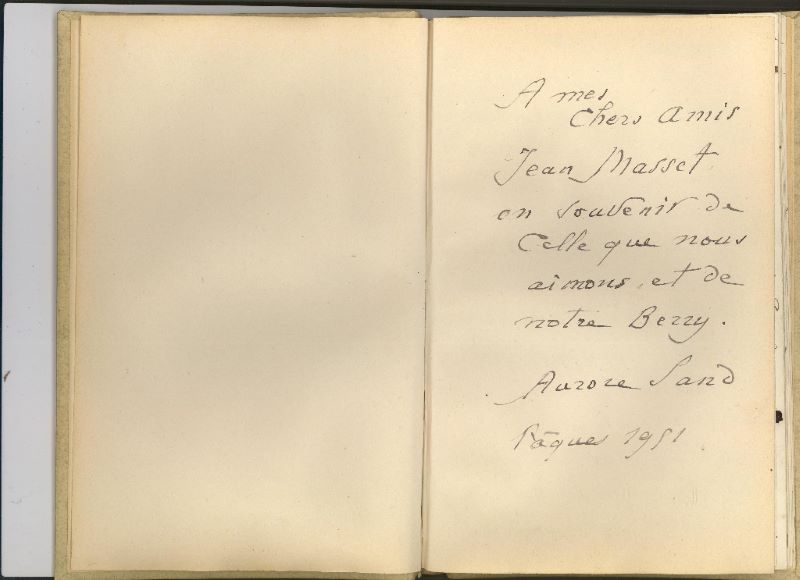 A mes
Chers Amis
Jean Masset
en souvenir de
Celle que nous
aimons, et de
notre Berry.
Aurore Sand
Pâques 1951